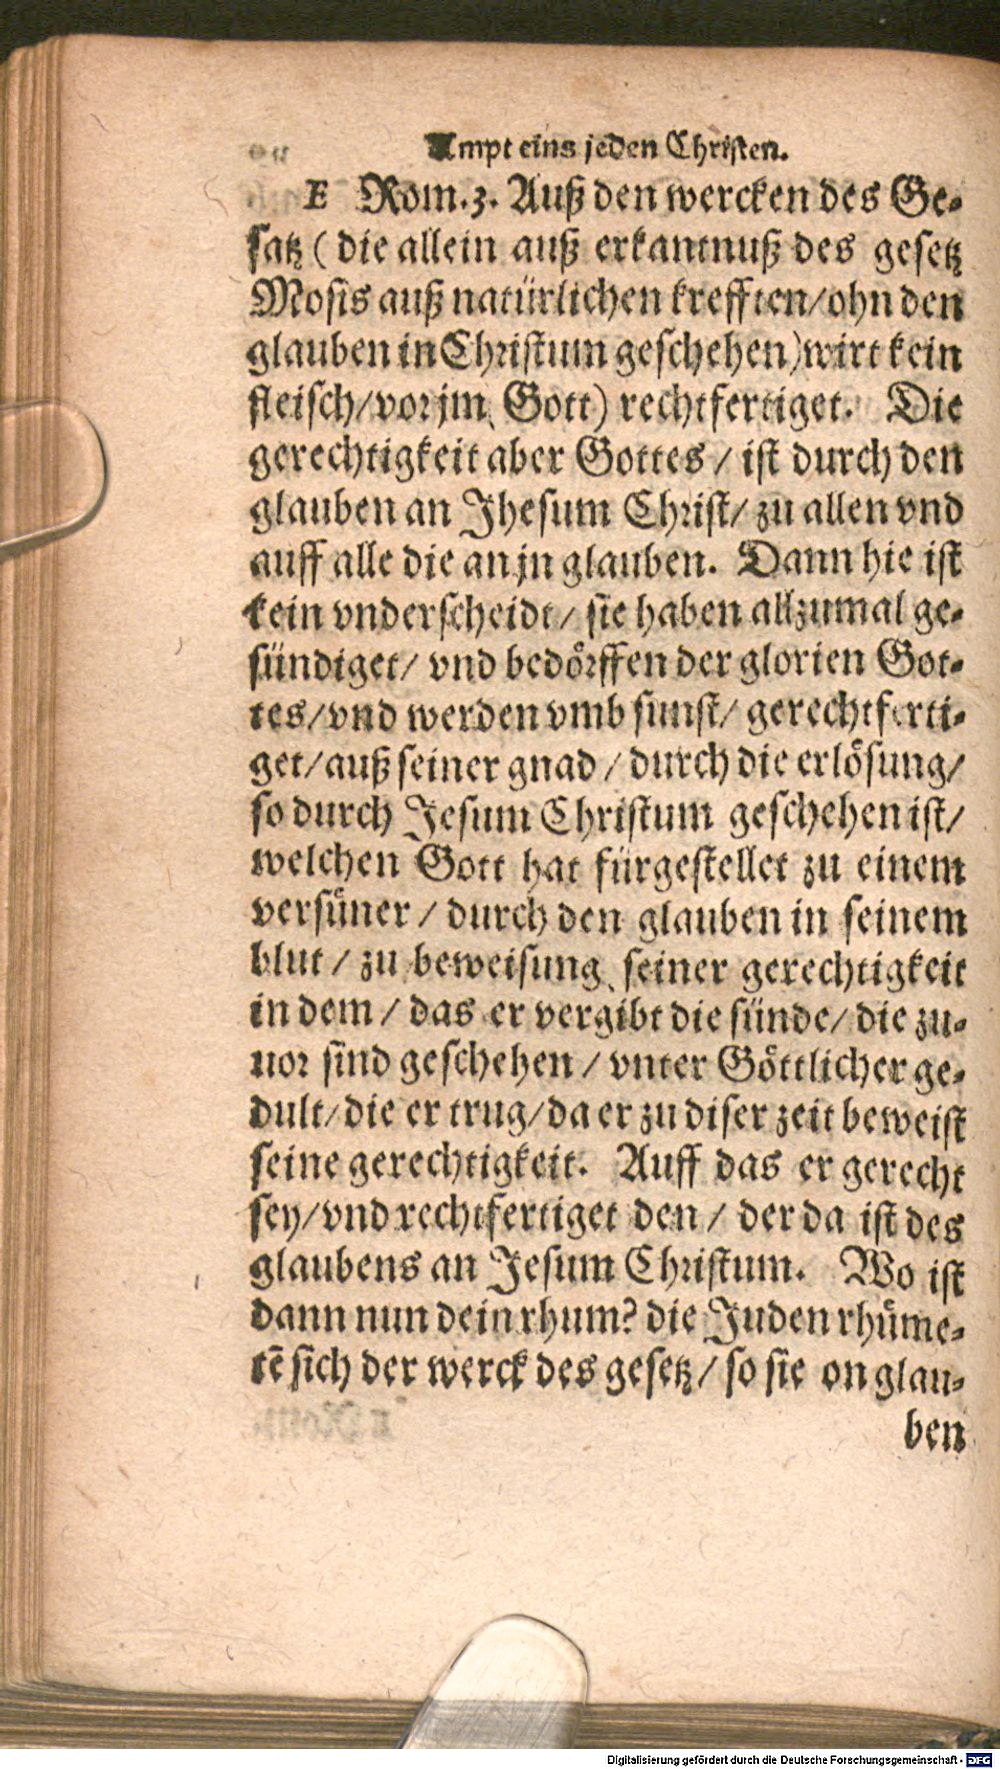 Ampt eins jeden Christen.
E Rom.3. Auß den wercken des Ge-
satz ( die allein auß erkantnuß des gesetz
Mosis auß natürlichen krefften/ohn den
glauben in Christum geschehen)wirt kein
fleisch/vor jm ( Gott) rechtfertiget. Die
gerechtigkeit aber Gottes / ist durch den
glauben an Jhesum Christ/ zu allen vnd
auff alle die an jn glauben. Dann hie ist
kein vnderscheidt/ sie haben allzumal ge-
sündiget/ vnd bedörffen der glorien Got-
tes/vnd werden vmb sunst/ gerechtferti-
get/auß seiner gnad / durch die erlösung/
so durch Jesum Christum geschehen ist/
welchen Gott hat fürgestellet zu einem
versüner / durch den glauben in seinem
blut / zu beweisung seiner gerechtigkeit
in dem / das er vergibt die sünde/ die zu-
uor sind geschehen / vnter Göttlicher ge-
dult/die er trug/da er zu diser zeit beweist
seine gerechtigkeit. Auff das er gerecht
sey/vnd rechtfertiget den / der da ist des
glaubens an Jesum Christum. Wo ist
dann nun dein rhum? die Juden rhüme-
tē sich der werck des gesetz/ so sie on glau-
ben
Digitalisierung gefördert durch die Deutsche Forschungsgemeinschaft - DFG